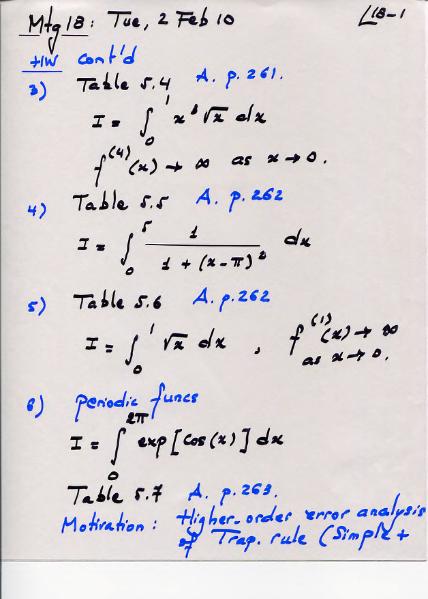 Mtg 18: Tue, 2 Feb 10 L18-1
HW cont'd
3) Table 5.4 A. p.261.
I = ∫₀¹ x³ √x dx
f⁽⁴⁾(x) → ∞ as x → 0.
4) Table 5.5 A. p.262
I = ∫₀⁵ 1 / (1 + (x-π)²) dx
5) Table 5.6 A. p.262
I = ∫₀¹ √x dx , f⁽¹⁾(x) → ∞
as x → 0.
6) periodic funcs
I = ∫₀^2π exp[cos(x)] dx
Table 5.7 A. p.263.
Motivation: Higher-order error analysis
of Trap. rule (Simple +